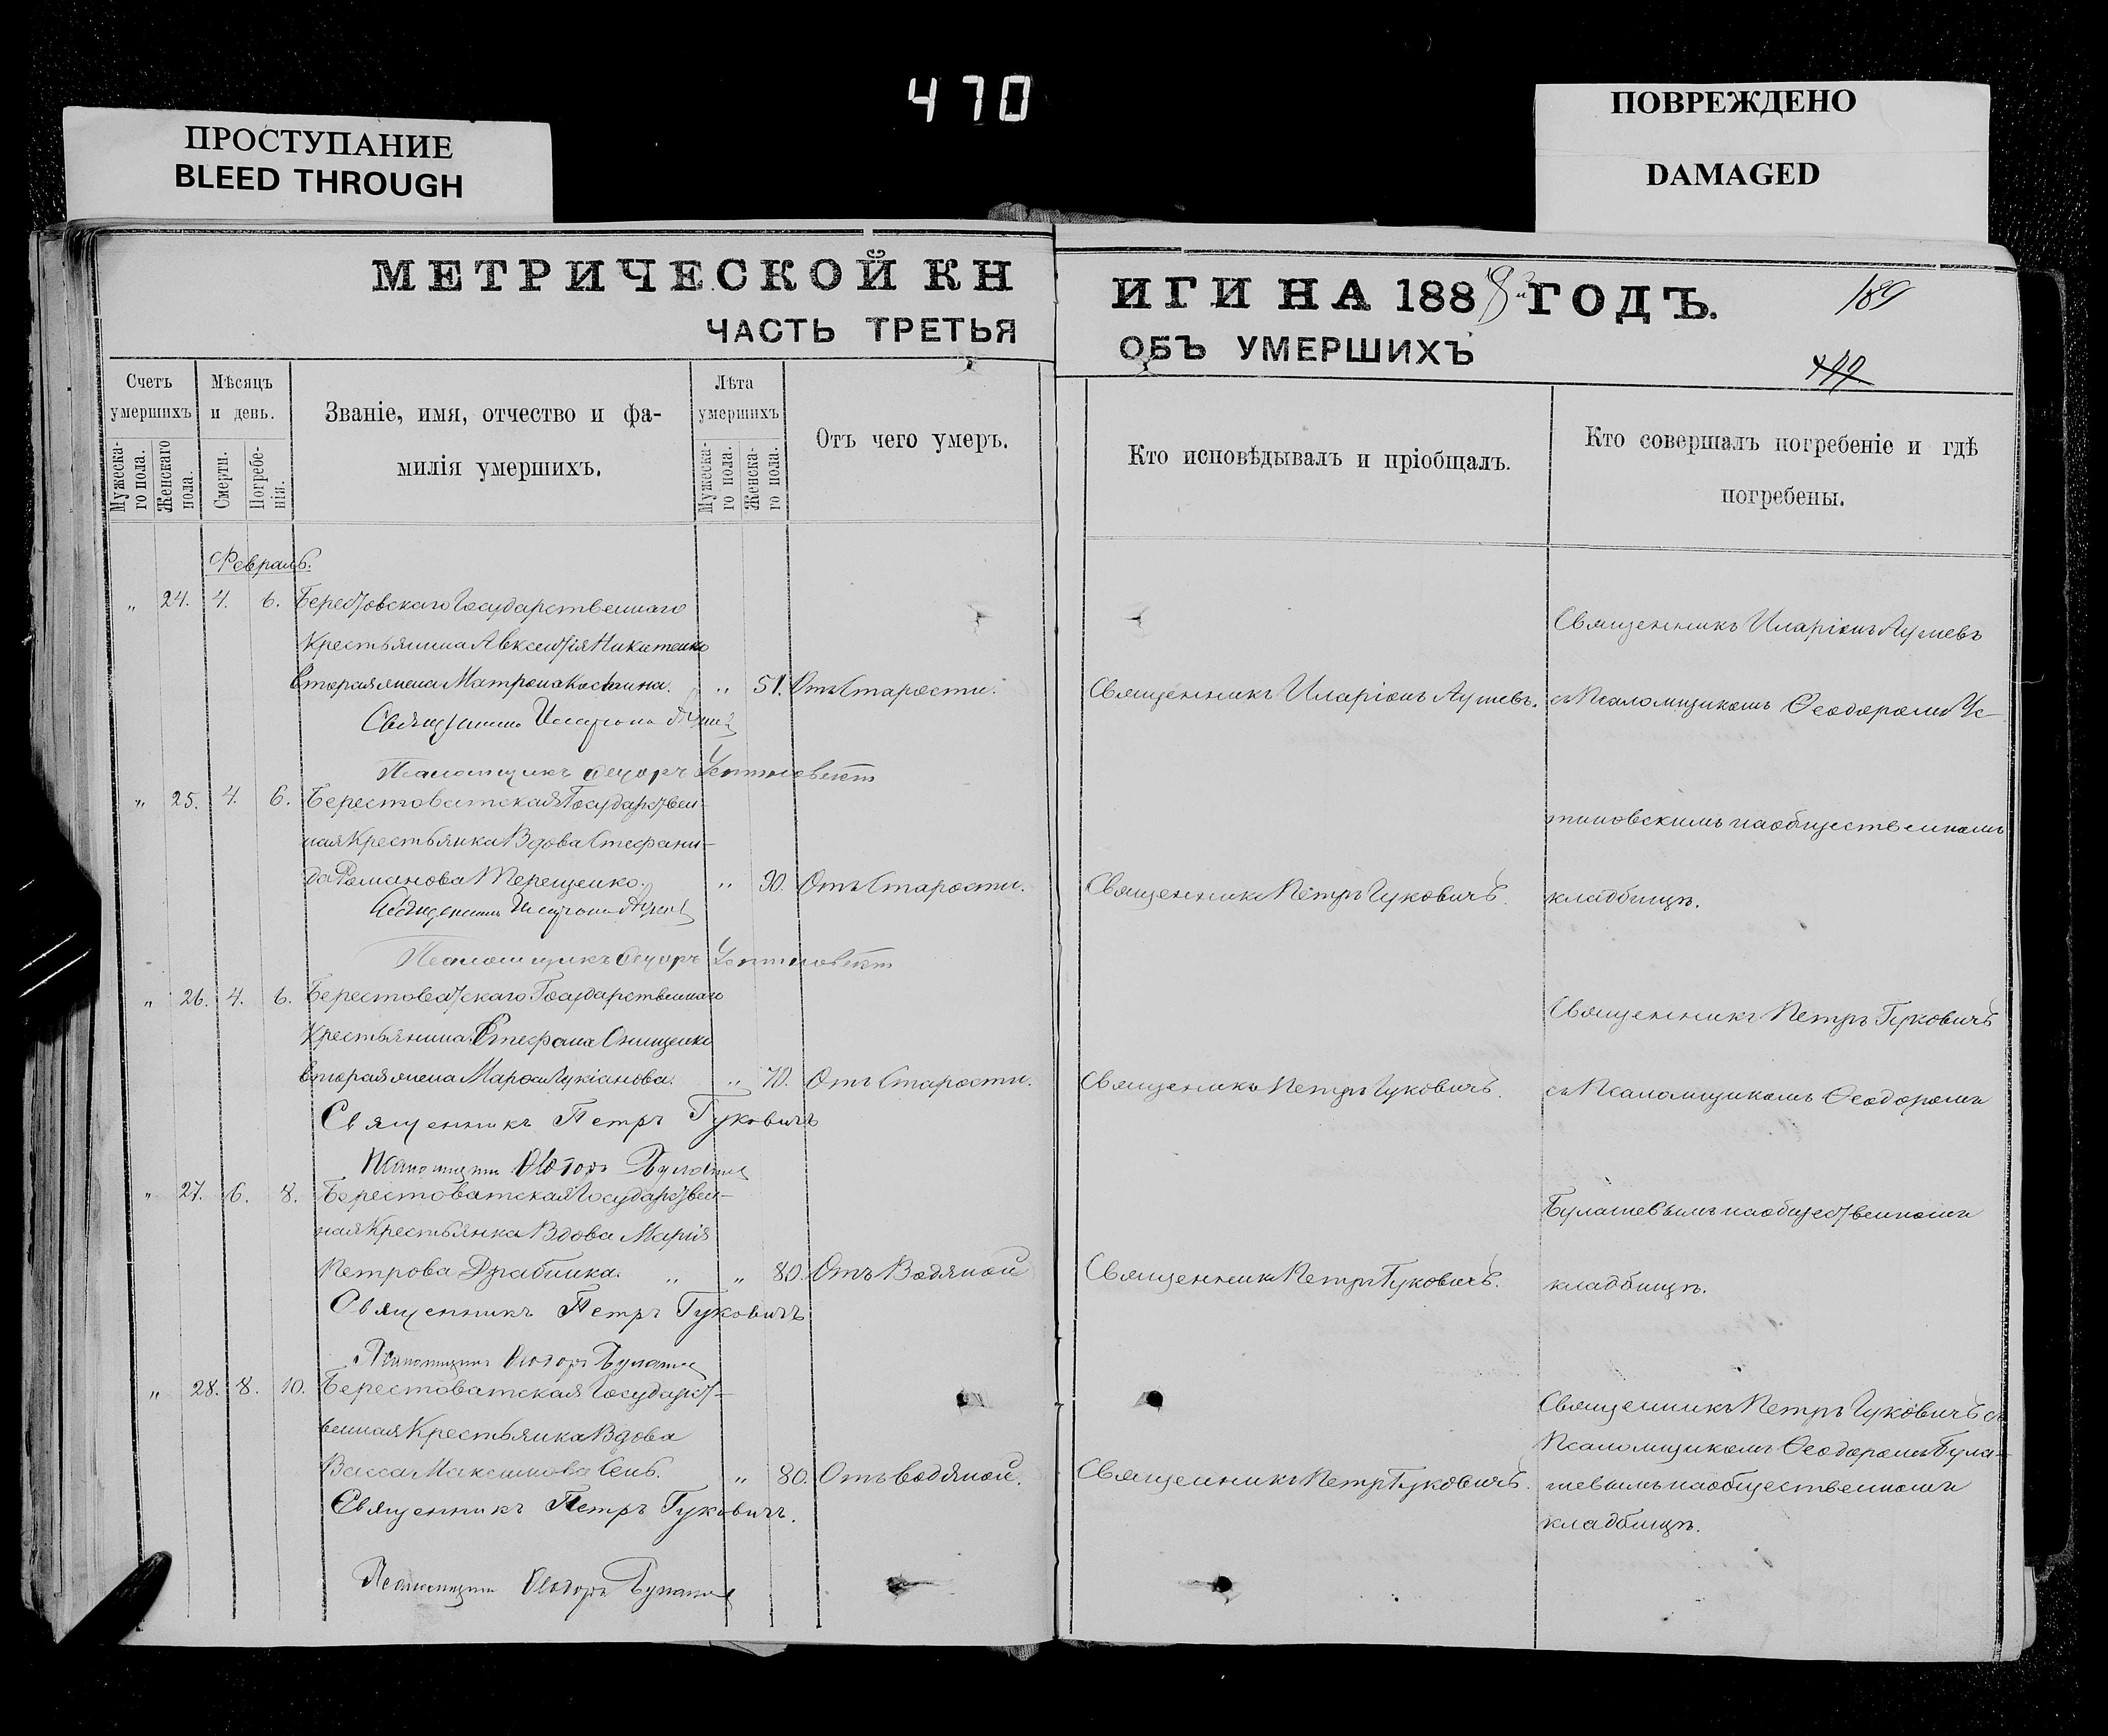 470
ПРОСТУПАНИЕ
BLEED THROUGH
ПОВРЕЖДЕНО
DAMAGED
МЕТРИЧЕСКОЙ КН
ЧАСТЬ ТРЕТЬЯ
Счетъ умершихъ
Мужеска-го пола.
Женскаго пола.
Мѣсяцъ и день.
Смерти.
Погребе-нія.
Званіе, имя, отчество и фа-
милія умершихъ.
Лѣта умершихъ
Мужеска-го пола.
Женска-го пола.
Отъ чего умеръ.
Февраль.
„ 24. 4. 6. Берестовскаго Государственнаго
Крестьянина Авксентія Никитенко
вторая жена Матрона Костина. „ 51. Отъ Старости.
Священникъ Иларіонъ
Псаломщикъ Ѳеодоръ Устиновскій
„ 25. 4. 6. Берестоватская Государствен-
ная Крестьянка Вдова Стефани-
да Романова Терещенко. „ 90. Отъ Старости.
Священникъ Иларіонъ
Псаломщикъ Ѳеодоръ Устиновскій
„ 26. 4. 6. Берестоватскаго Государственнаго
Крестьянина Стефана Онищенко
вторая жена Марѳа Лукіанова. „ 70. Отъ Старости.
Священникъ Петръ Гуковичъ
Псаломщикъ Ѳеодоръ Булашевъ
„ 27. 6. 8. Берестоватская Государствен-
ная Крестьянка Вдова Марія
Петрова Драбинка. „ „ 80. Отъ Водяной
Священникъ Петръ Гуковичъ
Псаломщикъ Ѳеодоръ Булашевъ
„ 28. 8. 10. Берестоватская Государст-
венная Крестьянка Вдова
Васса Максимова Сень. „ 80. Отъ водяной.
Священникъ Петръ Гуковичъ.
Псаломщикъ Ѳеодоръ Булашевъ
ИГИ НА 1883й ГОДЪ.
189
ОБЪ УМЕРШИХЪ
Кто исповѣдывалъ и пріобщалъ.
Кто совершалъ погребеніе и гдѣ
погребены.
Священникъ Иларіонъ
Священникъ Иларіонъ
съ Псаломщикомъ Ѳеодоромъ Ус-
тиновскимъ на общественномъ
Священникъ Петръ Гуковичъ.
кладбищѣ.
Священникъ Петръ Гуковичъ
Священникъ Петръ Гуковичъ.
съ Псаломщикомъ Ѳеодоромъ
Булашевымъ на общественномъ
Священникъ Петръ Гуковичъ.
кладбищѣ.
Священникъ Петръ Гуковичъ съ
Псаломщикомъ Ѳеодоромъ Була-
Священникъ Петръ Гуковичъ.
шевымъ на общественномъ
кладбищѣ.